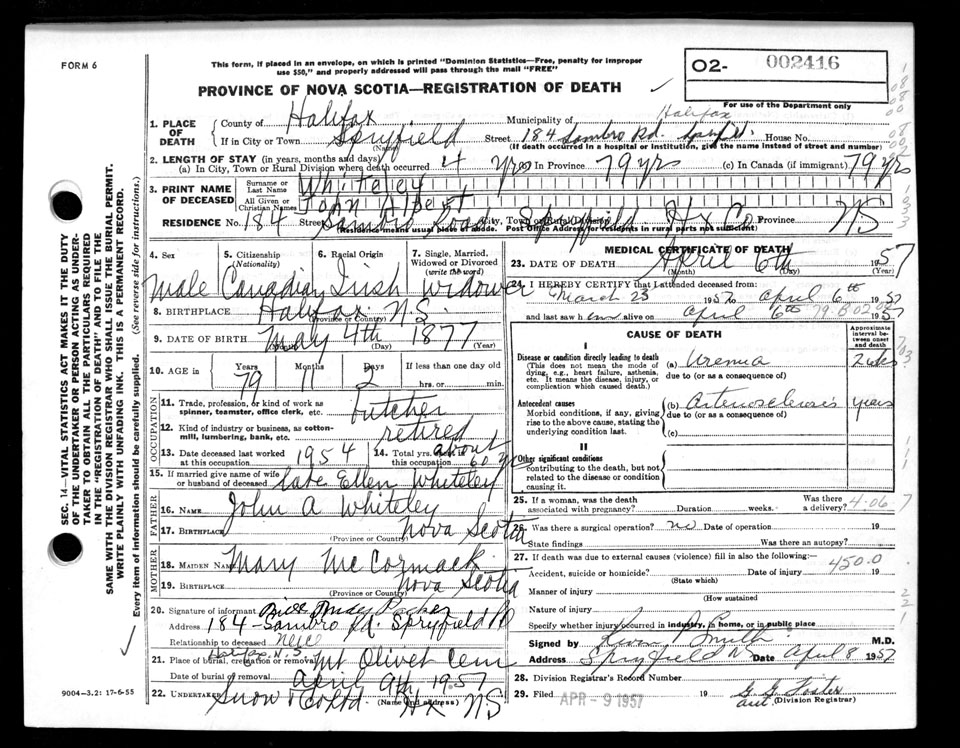 FORM 6
This form, if placed in an envelope, on which is printed "Dominion Statistics—Free, penalty for improper
use $50," and properly addressed will pass through the mail "FREE"
O2- 002416
For use of the Department only
PROVINCE OF NOVA SCOTIA—REGISTRATION OF DEATH
1. PLACE OF DEATH
County of Halifax Municipality of Halifax
If in City or Town Spryfield (Name) Street 184 Sambro Rd. House No.
(If death occurred in a hospital or institution, give the name instead of street and number)
2. LENGTH OF STAY (in years, months and days)
(a) In City, Town or Rural Division where death occurred 4 yrs (b) In Province 79 yrs (c) In Canada (if immigrant) 79 yrs
3. PRINT NAME OF DECEASED
Surname or Last Name Whiteley
All Given or Christian Names John Albert
RESIDENCE No. 184 Street Sambro Road City, Town or Rural Spryfield. Hx Co. Province NS
(Residence means usual place of abode. Post Office Address for residents in rural parts not sufficient)
4. Sex 5. Citizenship (Nationality) 6. Racial Origin 7. Single, Married, Widowed or Divorced (write the word)
male Canadian Irish Widower
8. BIRTHPLACE Halifax N.S.
(Province or Country)
9. DATE OF BIRTH May 4th 1877
(Month) (Day) (Year)
10. AGE Years Months Days If less than one day old
79 11 2 hrs. or min.
OCCUPATION
11. Trade, profession, or kind of work as
spinner, teamster, office clerk, etc. Butcher
12. Kind of industry or business, as cotton-
mill, lumbering, bank, etc. retired
13. Date deceased last worked at this occupation 1954 14. Total yrs. in this occupation about 60 yr
15. If married give name of wife
or husband of deceased late Ellen Whiteley
FATHER
16. NAME John A Whiteley
17. BIRTHPLACE Nova Scotia
(Province or Country)
MOTHER
18. MAIDEN NAME Mary McCormack
19. BIRTHPLACE Nova Scotia
(Province or Country)
20. Signature of informant
Address 184 - Sambro Rd. Spryfield
Relationship to deceased
Halifax N.S.
21. Place of burial, cremation or removal Mt Olivet Cem
Date of burial or removal April 9th 1957
22. UNDERTAKER Snow & Co Ltd Hx NS
(Name and address)
MEDICAL CERTIFICATE OF DEATH
23. DATE OF DEATH April 6th 1957
(Month) (Day) (Year)
24. I HEREBY CERTIFY that I attended deceased from:
March 23 1957 to April 6th 1957
and last saw him alive on April 6th 1957
CAUSE OF DEATH
Approximate interval between onset and death
I
Disease or condition directly leading to death
(This does not mean the mode of dying, e.g., heart failure, asthenia, etc. It means the disease, injury, or complication which caused death.)
(a) Uremia 2 wks
due to (or as a consequence of)
Antecedent causes
Morbid conditions, if any, giving rise to the above cause, stating the underlying condition last.
(b) Arteriosclerosis years
due to (or as a consequence of)
(c)
II
Other significant conditions
contributing to the death, but not related to the disease or condition causing it.
25. If a woman, was the death
associated with pregnancy? Duration weeks. Was there a delivery?
4-06
26. Was there a surgical operation? no Date of operation 19
State findings Was there an autopsy?
27. If death was due to external causes (violence) fill in also the following:
450.0
Accident, suicide or homicide? Date of injury 19
(State which)
Manner of injury
(How sustained)
Nature of injury
Specify whether injury occurred in industry, in home, or in public place
Signed by Smith M.D.
Address Spryfield NS Date April 8 1957
28. Division Registrar's Record Number
29. Filed APR - 9 1957 19 Foster
(Division Registrar)
9004—3.2: 17-6-55
SEC. 14—VITAL STATISTICS ACT MAKES IT THE DUTY
OF THE UNDERTAKER OR PERSON ACTING AS UNDER-
TAKER TO OBTAIN ALL THE PARTICULARS REQUIRED
IN THE "REGISTRATION OF DEATH" AND TO FILE THE
SAME WITH THE DIVISION REGISTRAR WHO SHALL ISSUE THE BURIAL PERMIT.
WRITE PLAINLY WITH UNFADING INK. THIS IS A PERMANENT RECORD.
Every item of information should be carefully supplied. (See reverse side for instructions.)